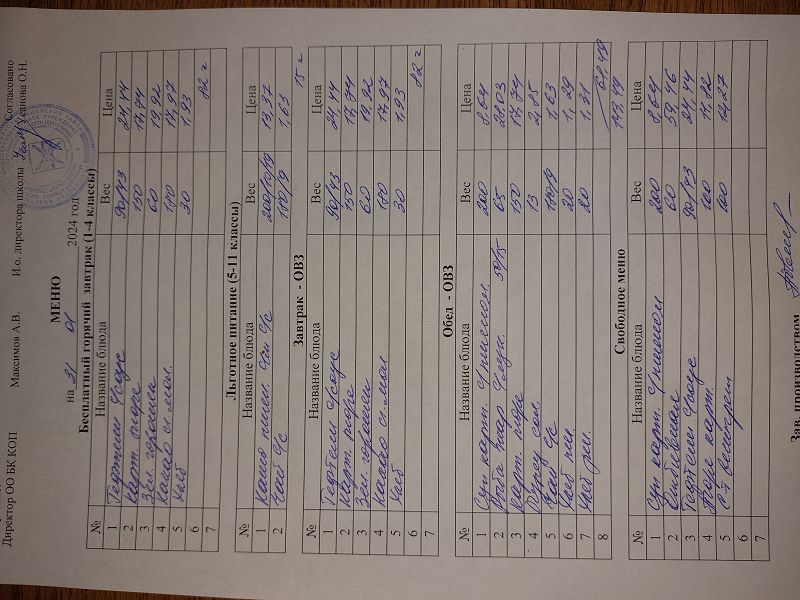 Директор ОО БК КОП Максимов А.В. И.о. директора школы Усанова О.Н. Согласовано
МЕНЮ
на 31 01 2024 год
Бесплатный горячий завтрак (1-4 классы)
№ Название блюда Вес Цена
1 Тефтели 90/43 24,44
2 Карт. пюре 150 17,74
3 Зел. горошек 60 19,92
4 Какао сг. мол. 180 17,97
5 Хлеб 30 1,93
6 82 г
7
Льготное питание (5-11 классы)
№ Название блюда Вес Цена
1 Каша пшен. 200/10/9 13,37
2 Чай с/с 180/9 1,63
15 г
Завтрак - ОВЗ
№ Название блюда Вес Цена
1 Тефтели 90/43 24,44
2 Карт. пюре 150 17,74
3 Зел. горошек 60 19,92
4 Какао сг. мол. 180 17,97
5 Хлеб 30 1,93
6 82 г
7
Обед - ОВЗ
№ Название блюда Вес Цена
1 Суп карт. 200 8,64
2 Рыба 50/15 65 28,03
3 Карт. пюре 150 17,74
4 13 2,85
5 Чай с/с 180/9 1,63
6 Хлеб пш. 20 1,29
7 Хлеб рж. 20 1,31
8
143,49
Свободное меню
№ Название блюда Вес Цена
1 Суп карт. 200 8,64
2 60 39,46
3 Тефтели 90/43 24,44
4 карт. 100 11,82
5 100 14,27
6
7
Зав. производством